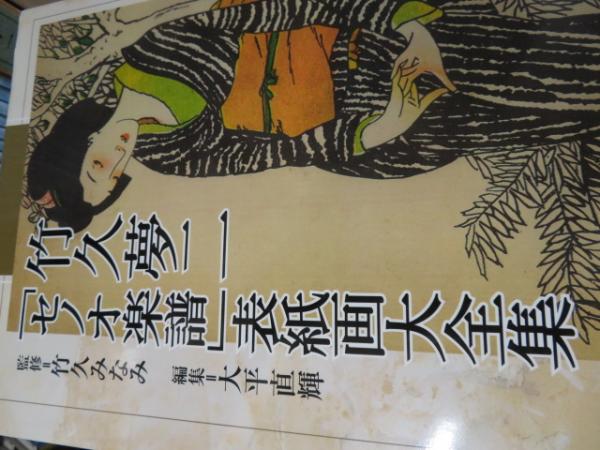 竹久夢二
「セノオ楽譜」表紙画大全集
監修=竹久みなみ
編集=大平直輝